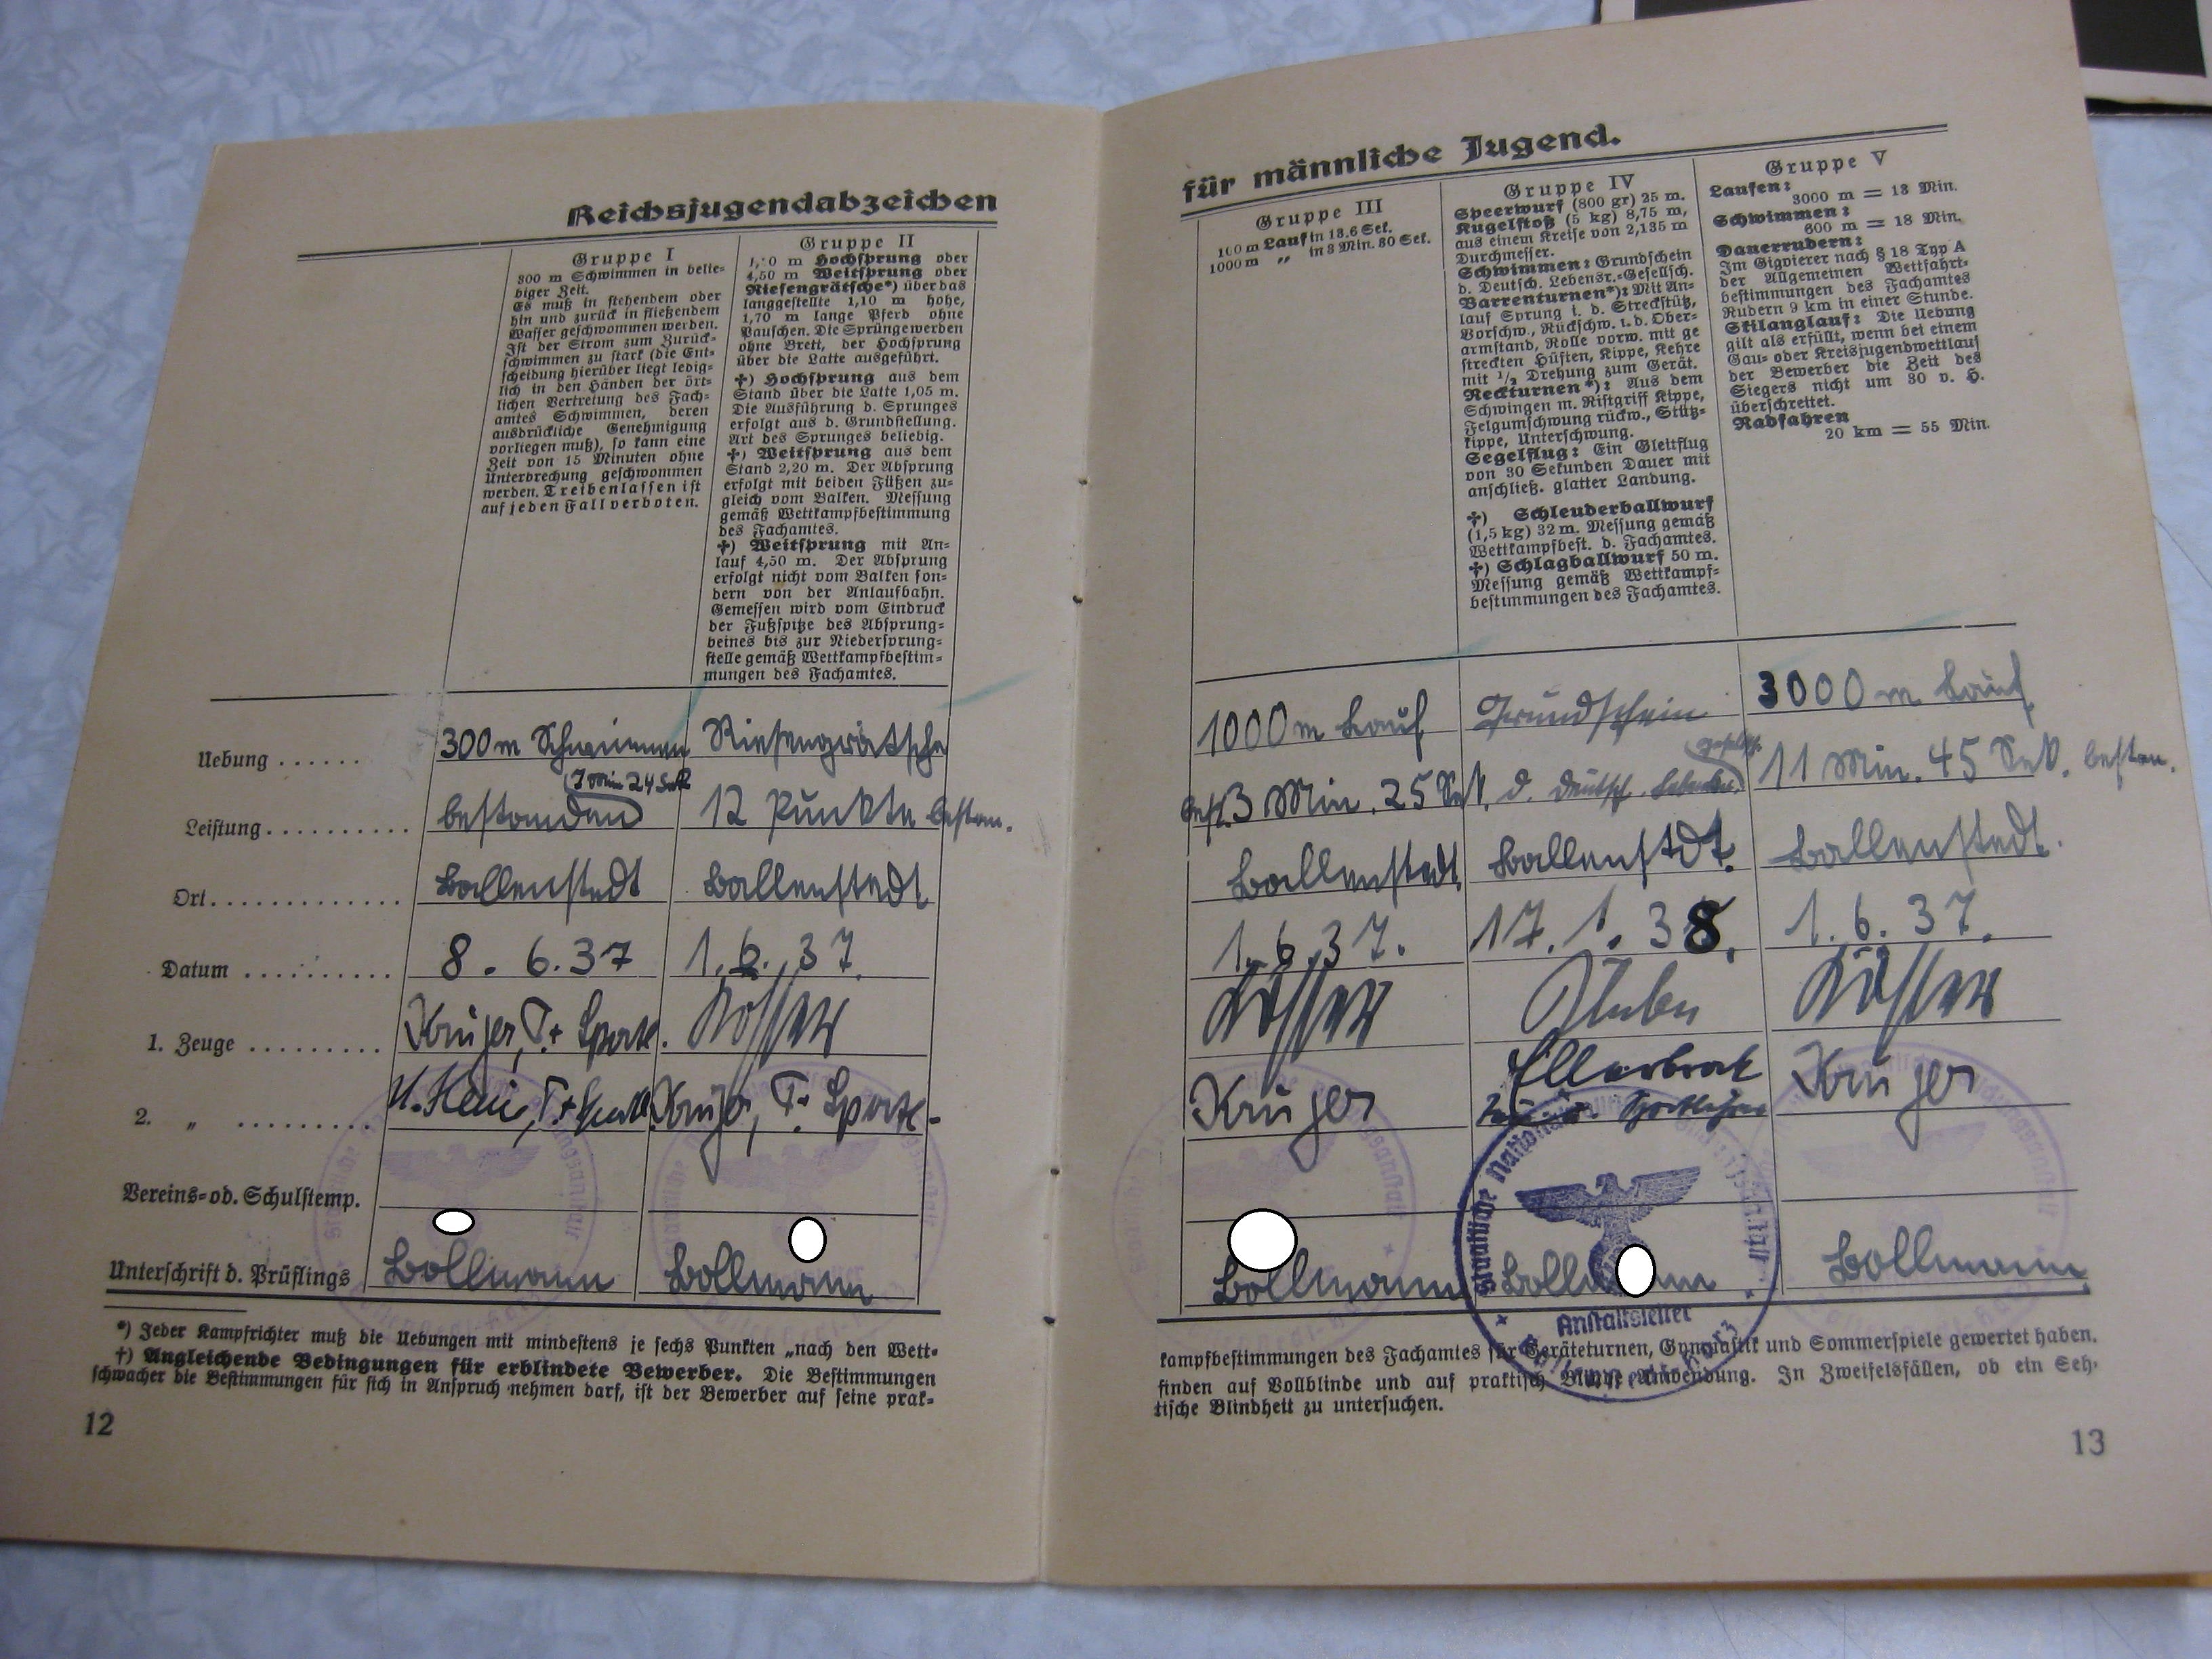 Reichsjugendabzeichen
Gruppe I
300 m Schwimmen in belie-
biger Zeit.
Es muß in stehendem oder
hin und zurück in fließendem
Wasser geschwommen werden.
Ist der Strom zum Zurück-
schwimmen zu stark (die Ent-
scheidung hierüber liegt ledig-
lich in den Händen der ört-
lichen Vertretung des Fach-
amtes Schwimmen, deren
ausdrückliche Genehmigung
vorliegen muß), so kann eine
Zeit von 15 Minuten ohne
Unterbrechung geschwommen
werden. Treibenlassen ist
auf jeden Fall verboten.
Gruppe II
m Hochsprung oder
4,50 m Weitsprung oder
Riesengrätsche*) über das
langgestellte 1,10 m hohe,
1,70 m lange Pferd ohne
Pauschen. Die Sprünge werden
ohne Brett, der Hochsprung
über die Latte ausgeführt.
†) Hochsprung aus dem
Stand über die Latte 1,05 m.
Die Ausführung d. Sprunges
erfolgt aus d. Grundstellung.
Art des Sprunges beliebig.
†) Weitsprung aus dem
Stand 2,20 m. Der Absprung
erfolgt mit beiden Füßen zu-
gleich vom Balken. Messung
gemäß Wettkampfbestimmung
des Fachamtes.
†) Weitsprung mit An-
lauf 4,50 m. Der Absprung
erfolgt nicht vom Balken son-
dern von der Anlaufbahn.
Gemessen wird vom Eindruck
der Fußspitze des Absprung-
beines bis zur Niedersprung-
stelle gemäß Wettkampfbestim-
mungen des Fachamtes.
Uebung ...... 300 m Schwimmen Riesengrätsche
(7 min 24 Sek
Leistung .......... bestanden 12 Punkte bestan.
Ort ............. Ballenstedt Ballenstedt
Datum .......... 8. 6. 37 1. 6. 37.
1. Zeuge ......... Krüger, T. + Sportl.
2. „ ......... Krüger, T. Sportl.
Vereins- od. Schulstemp.
Unterschrift d. Prüflings Bollmann Bollmann
*) Jeder Kampfrichter muß die Uebungen mit mindestens je sechs Punkten „nach den Wett-
†) Angleichende Bedingungen für erblindete Bewerber. Die Bestimmungen
schwacher die Bestimmungen für sich in Anspruch nehmen darf, ist der Bewerber auf seine prak-
12
für männliche Jugend.
Gruppe III
100 m Lauf in 13.6 Sek.
1000 m „ in 3 Min. 30 Sek.
Gruppe IV
Speerwurf (800 gr) 25 m.
Kugelstoß (5 kg) 8,75 m,
aus einem Kreise von 2,135 m
Durchmesser.
Schwimmen: Grundschein
d. Deutsch. Lebensr.-Gesellsch.
Barrenturnen*): Mit An-
lauf Sprung i. d. Streckstütz,
Vorschw., Rückschw. i. d. Ober-
armstand, Rolle vorw. mit ge
streckten Hüften, Kippe, Kehre
mit 1/2 Drehung zum Gerät.
Reckturnen*): Aus dem
Schwingen m. Ristgriff Kippe,
Felgumschwung rückw., Stütz-
kippe, Unterschwung.
Segelflug: Ein Gleitflug
von 30 Sekunden Dauer mit
anschließ. glatter Landung.
†) Schleuderballwurf
(1,5 kg) 32 m. Messung gemäß
Wettkampfbest. d. Fachamtes.
†) Schlagballwurf 50 m.
Messung gemäß Wettkampf-
bestimmungen des Fachamtes.
Gruppe V
Laufen:
3000 m = 13 Min.
Schwimmen:
600 m = 18 Min.
Dauerrudern:
Im Gigvierer nach § 18 Typ A
der Allgemeinen Wettfahrt-
bestimmungen des Fachamtes
Rudern 9 km in einer Stunde.
Skilanglauf: Die Uebung
gilt als erfüllt, wenn bei einem
Gau- oder Kreisjugendwettlauf
der Bewerber die Zeit des
Siegers nicht um 30 v. H.
überschreitet.
Radfahren
20 km = 55 Min.
1000 m Lauf Grundschein 3000 m Lauf
best. 3 Min. 25 Sek. d. Deutsch. Lebensr. Gesellsch. 11 Min. 45 Sek. bestan.
Ballenstedt Ballenstdt. Ballenstedt.
1. 6. 37. 17. 1. 38. 1. 6. 37.
Krüger Ellerbrock Krüger
Staatliche Nationalpolitische Erziehungsanstalt
Anstaltsleiter
Bollmann Bollmann Bollmann
kampfbestimmungen des Fachamtes für Geräteturnen, Gymnastik und Sommerspiele gewertet haben.
finden auf Vollblinde und auf praktisch Blinde Anwendung. In Zweifelsfällen, ob ein Seh-
tische Blindheit zu untersuchen.
13